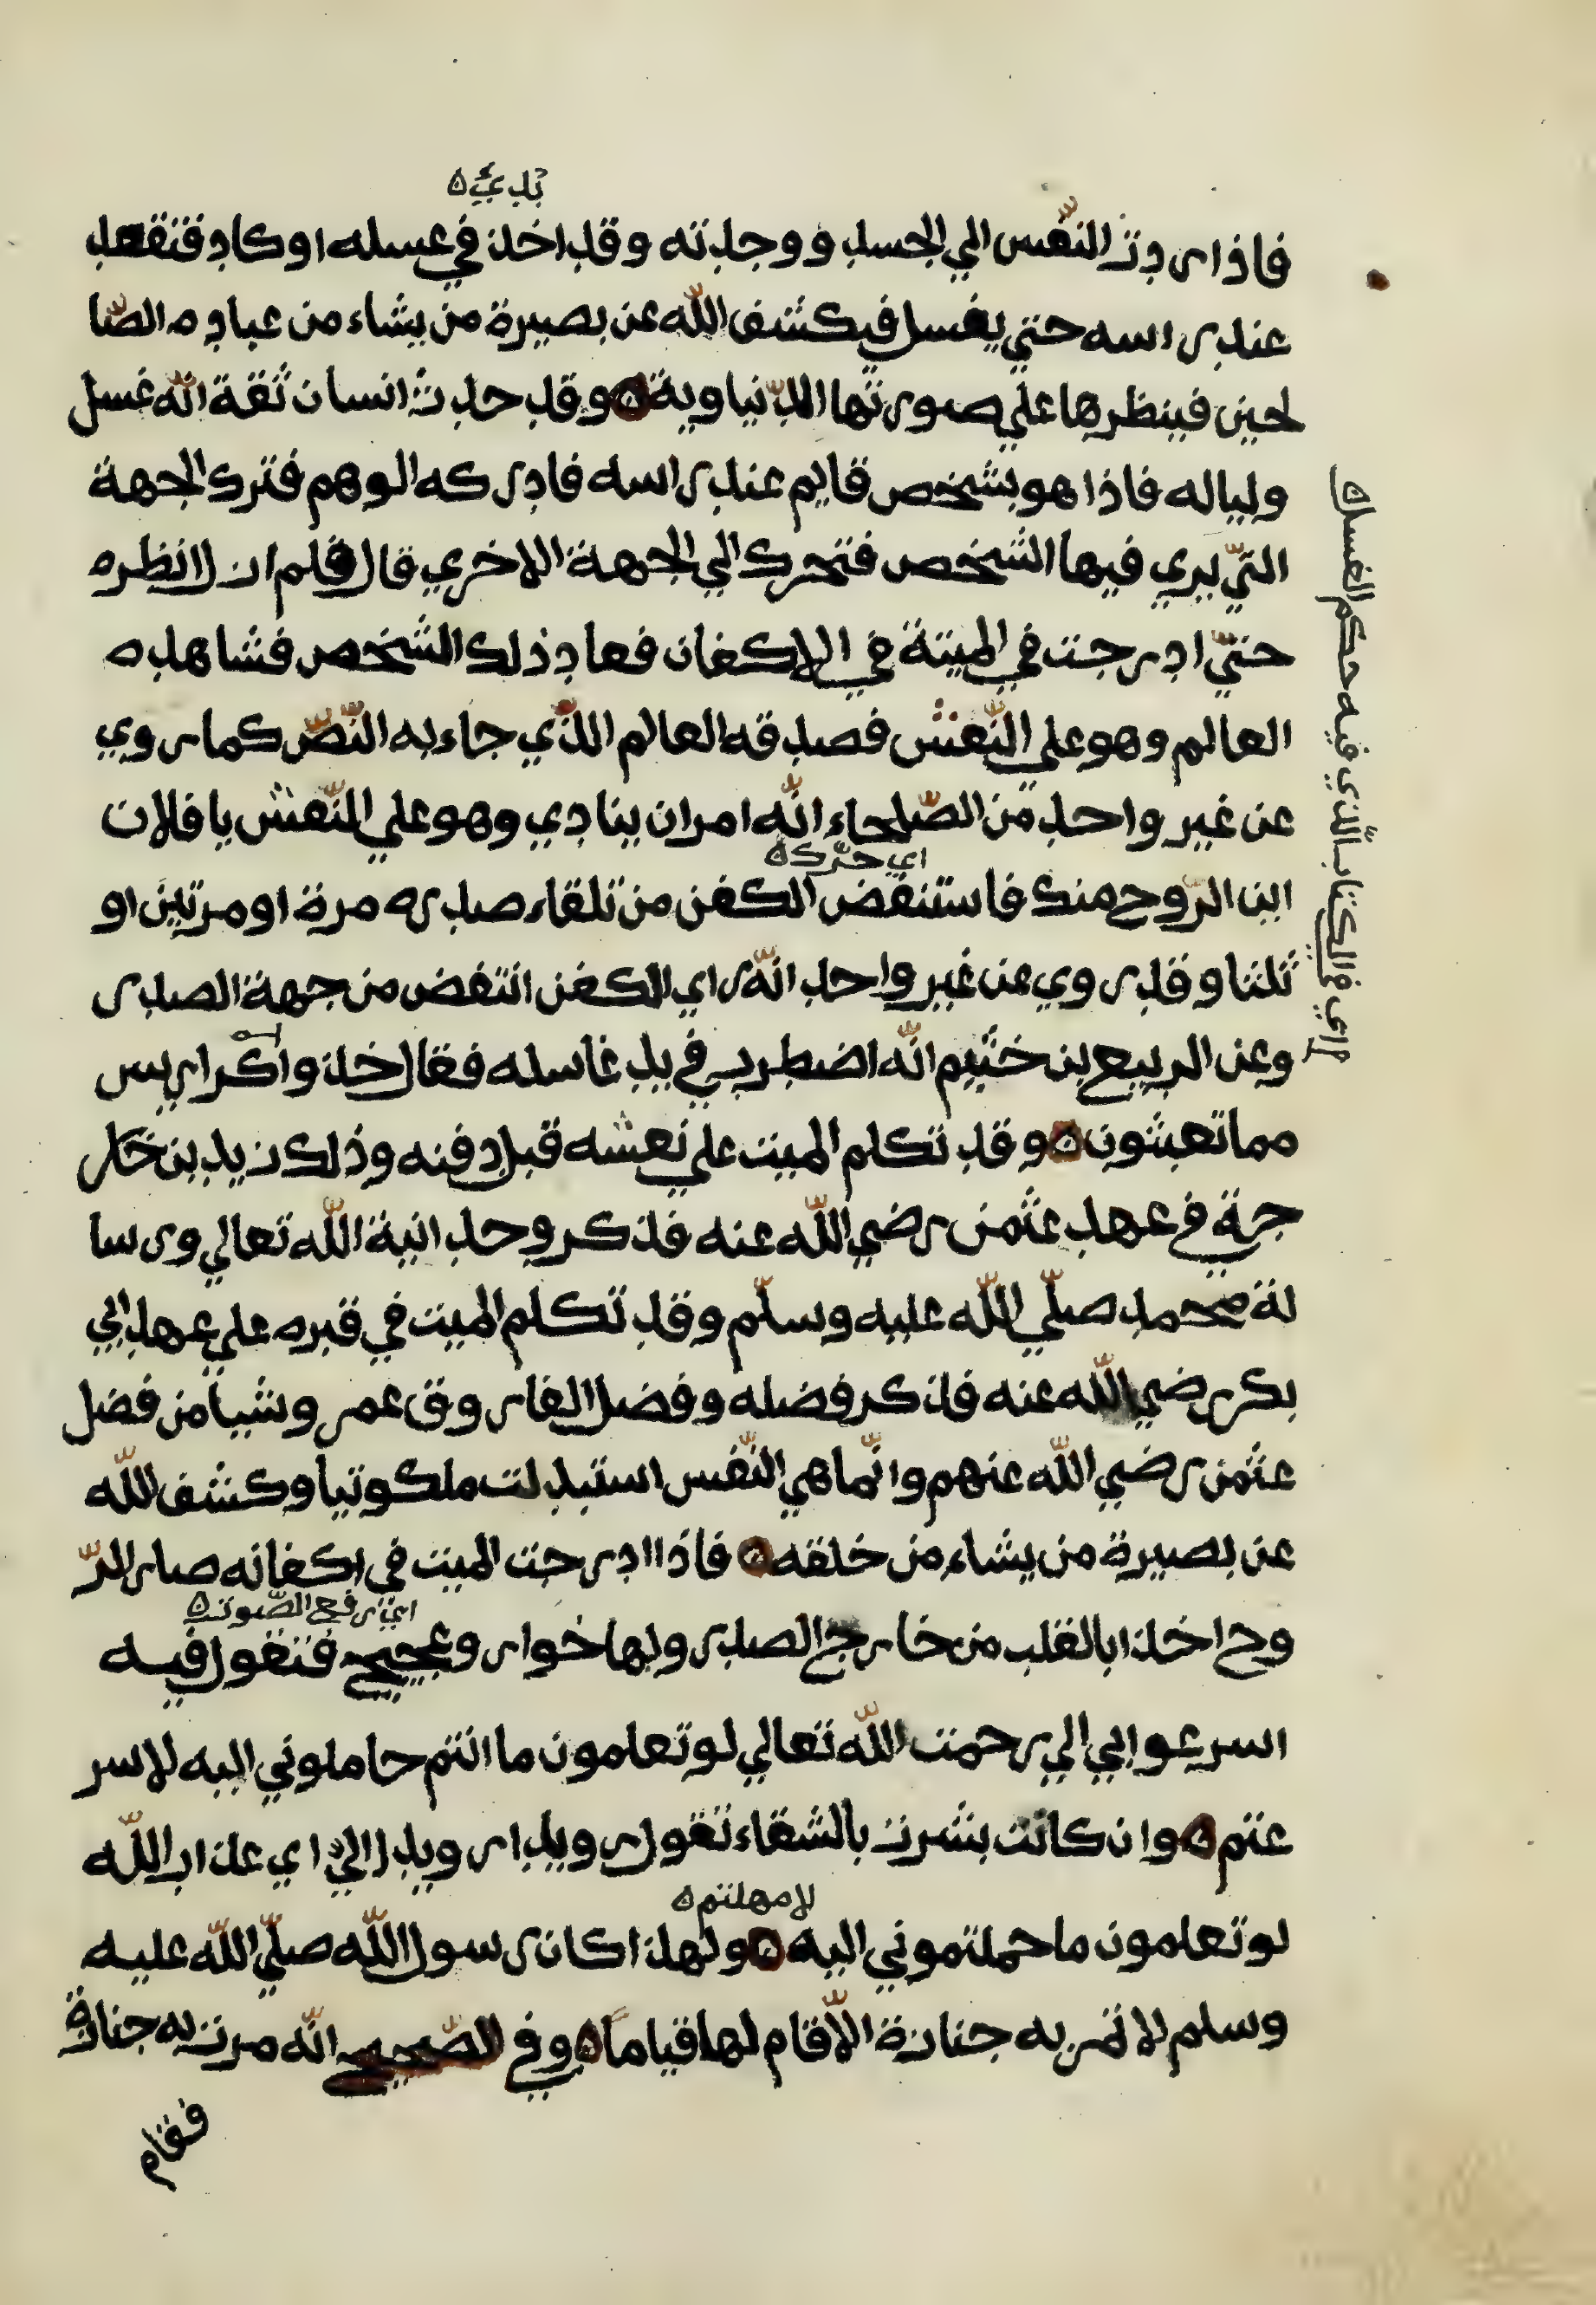 بدئ ه
فاذا ردت النّفس الي الجسد ووجدته وقد اخذ في غسله او كاد فتقعد
عند راسه حتي يغسل فيكشف اللّه عن بصيرة من يشاء من عباده الصّا
لحين فينظرها علي صورتها الدّنياوية ه وقد حدث انسان ثقة انّه غسل
وليا له فاذا هو بشخص قايم عند راسه فادركه الوهم فترك الجهة
التّي يري فيها الشّخص فتحرك الي الجهة الاخري قال فلم ازل انظره
حتيّ ادرجت في الميتة في الاكفان فعاد ذلك الشّخص فشاهده
العالم وهو علي النّعش فصدقه العالم اللّذي جاء به النّصّ كما روي
عن غير واحد من الصّلحاء انّه امر ان ينادي وهو علي النّعش يا فلان
اي حرّك ه
اين الرّوح منك فاستنفض الكفن من تلقاء صدره مرة او مرتين او
ثلثا وقد روي عن غير واحد انّه راي الكفن انتفض من جهة الصدر
وعن الربيع بن خثيم انّه اضطرب في يد غاسله فقال خذ واكراريس
مما تعبثون ه وقد تكلم الميت علي نعشه قبل دفنه وذلك زيد بن خار
جة في عهد عثمن رضي اللّه عنه فذكر وحدانية اللّه تعالي ورسا
لة محمد صلّي اللّه عليه وسلّم وقد تكلم الميت في قبره علي عهد ابي
بكر رضي اللّه عنه فذكر فضله وفضل الفاروق عمر وشيا من فضل
عثمن رضي اللّه عنهم وانّما هي النّفس استبدلت ملكوتيا وكشف اللّه
عن بصيرة من يشاء من خلقه ه فاذا ادرجت الميت في اكفانه صار الرّ
اي رفع الصّوت ه
وح اخذا بالقلب من خارج الصدر ولها خوار وعجيج فتقول فيه
اسرعوا بي الي رحمت اللّه تعالي لو تعلمون ما انتم حاملوني اليه لاسر
عتم ه وان كانت بشرت بالشقاء تقول رويدا رويدا الي اي عذاب اللّه
لامهلتم ه
لو تعلمون ما حملتموني اليه ه ولهذا كان رسول اللّه صلّي اللّه عليه
وسلم لا تمر به جنازة الّا قام لها قياما ه وفي الصّحيح انّه مرت به جنازة
فقام
اي في الكتاب الّذي فيه حكم الغسل ه